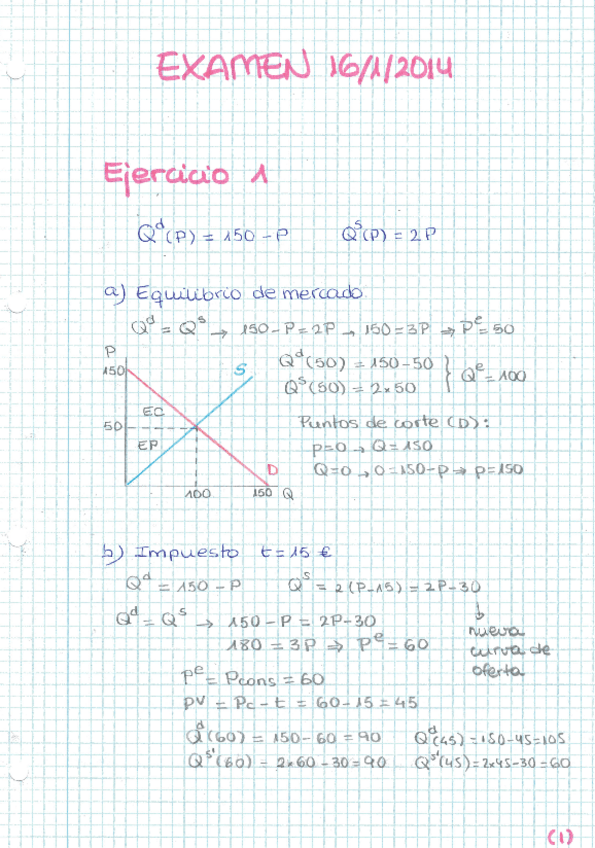 EXAMEN 16/1/2014
Ejercicio 1
Qᵈ(P) = 150 - P    Qˢ(P) = 2P
a) Equilibrio de mercado
Qᵈ = Qˢ → 150 - P = 2P → 150 = 3P ⇒ Pᵉ = 50
P
150
S
EC
50
EP
D
100
150 Q
Qᵈ(50) = 150 - 50
Qˢ(50) = 2×50
} Qᵉ = 100
Puntos de corte (D):
p=0 → Q = 150
Q=0 → 0 = 150 - p ⇒ p = 150
b) Impuesto t = 15 €
Qᵈ = 150 - P    Qˢ = 2(P-15) = 2P - 30
↓
nueva
curva de
oferta
Qᵈ = Qˢ → 150 - P = 2P - 30
180 = 3P ⇒ Pᵉ = 60
Pᵉ = Pcons = 60
PV = Pc - t = 60 - 15 = 45
Qᵈ(60) = 150 - 60 = 90    Qᵈ(45) = 150 - 45 = 105
Qˢ'(60) = 2×60 - 30 = 90    Qˢ'(45) = 2×45 - 30 = 60
(1)